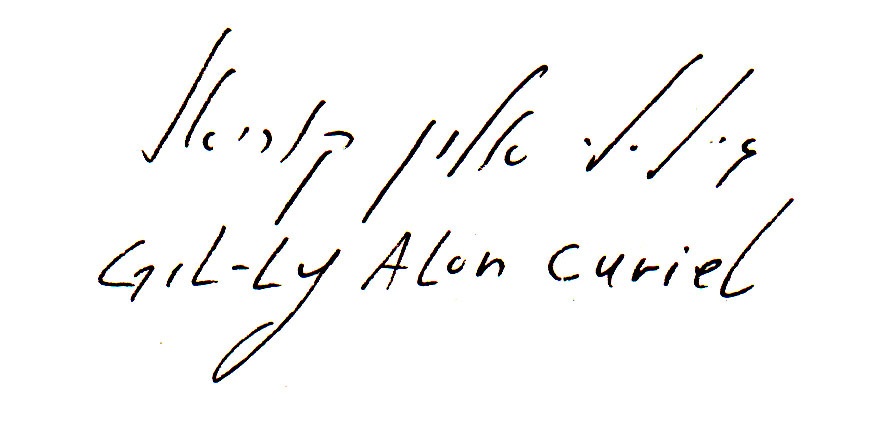 גיל-לי אלון קוריאל
Gil-Ly Alon Curiel